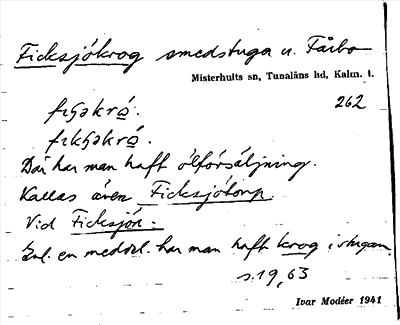 Ficksjökrog smedstuga u. Fårbo
Misterhults sn, Tunaläns hd, Kalm. l.
262
Där har man haft ölförsäljning.
Kallas även Ficksjötorp
Vid Ficksjön.
Enl. en meddel. har man haft krog i stugan.
s. 19, 63
Ivar Modéer 1941